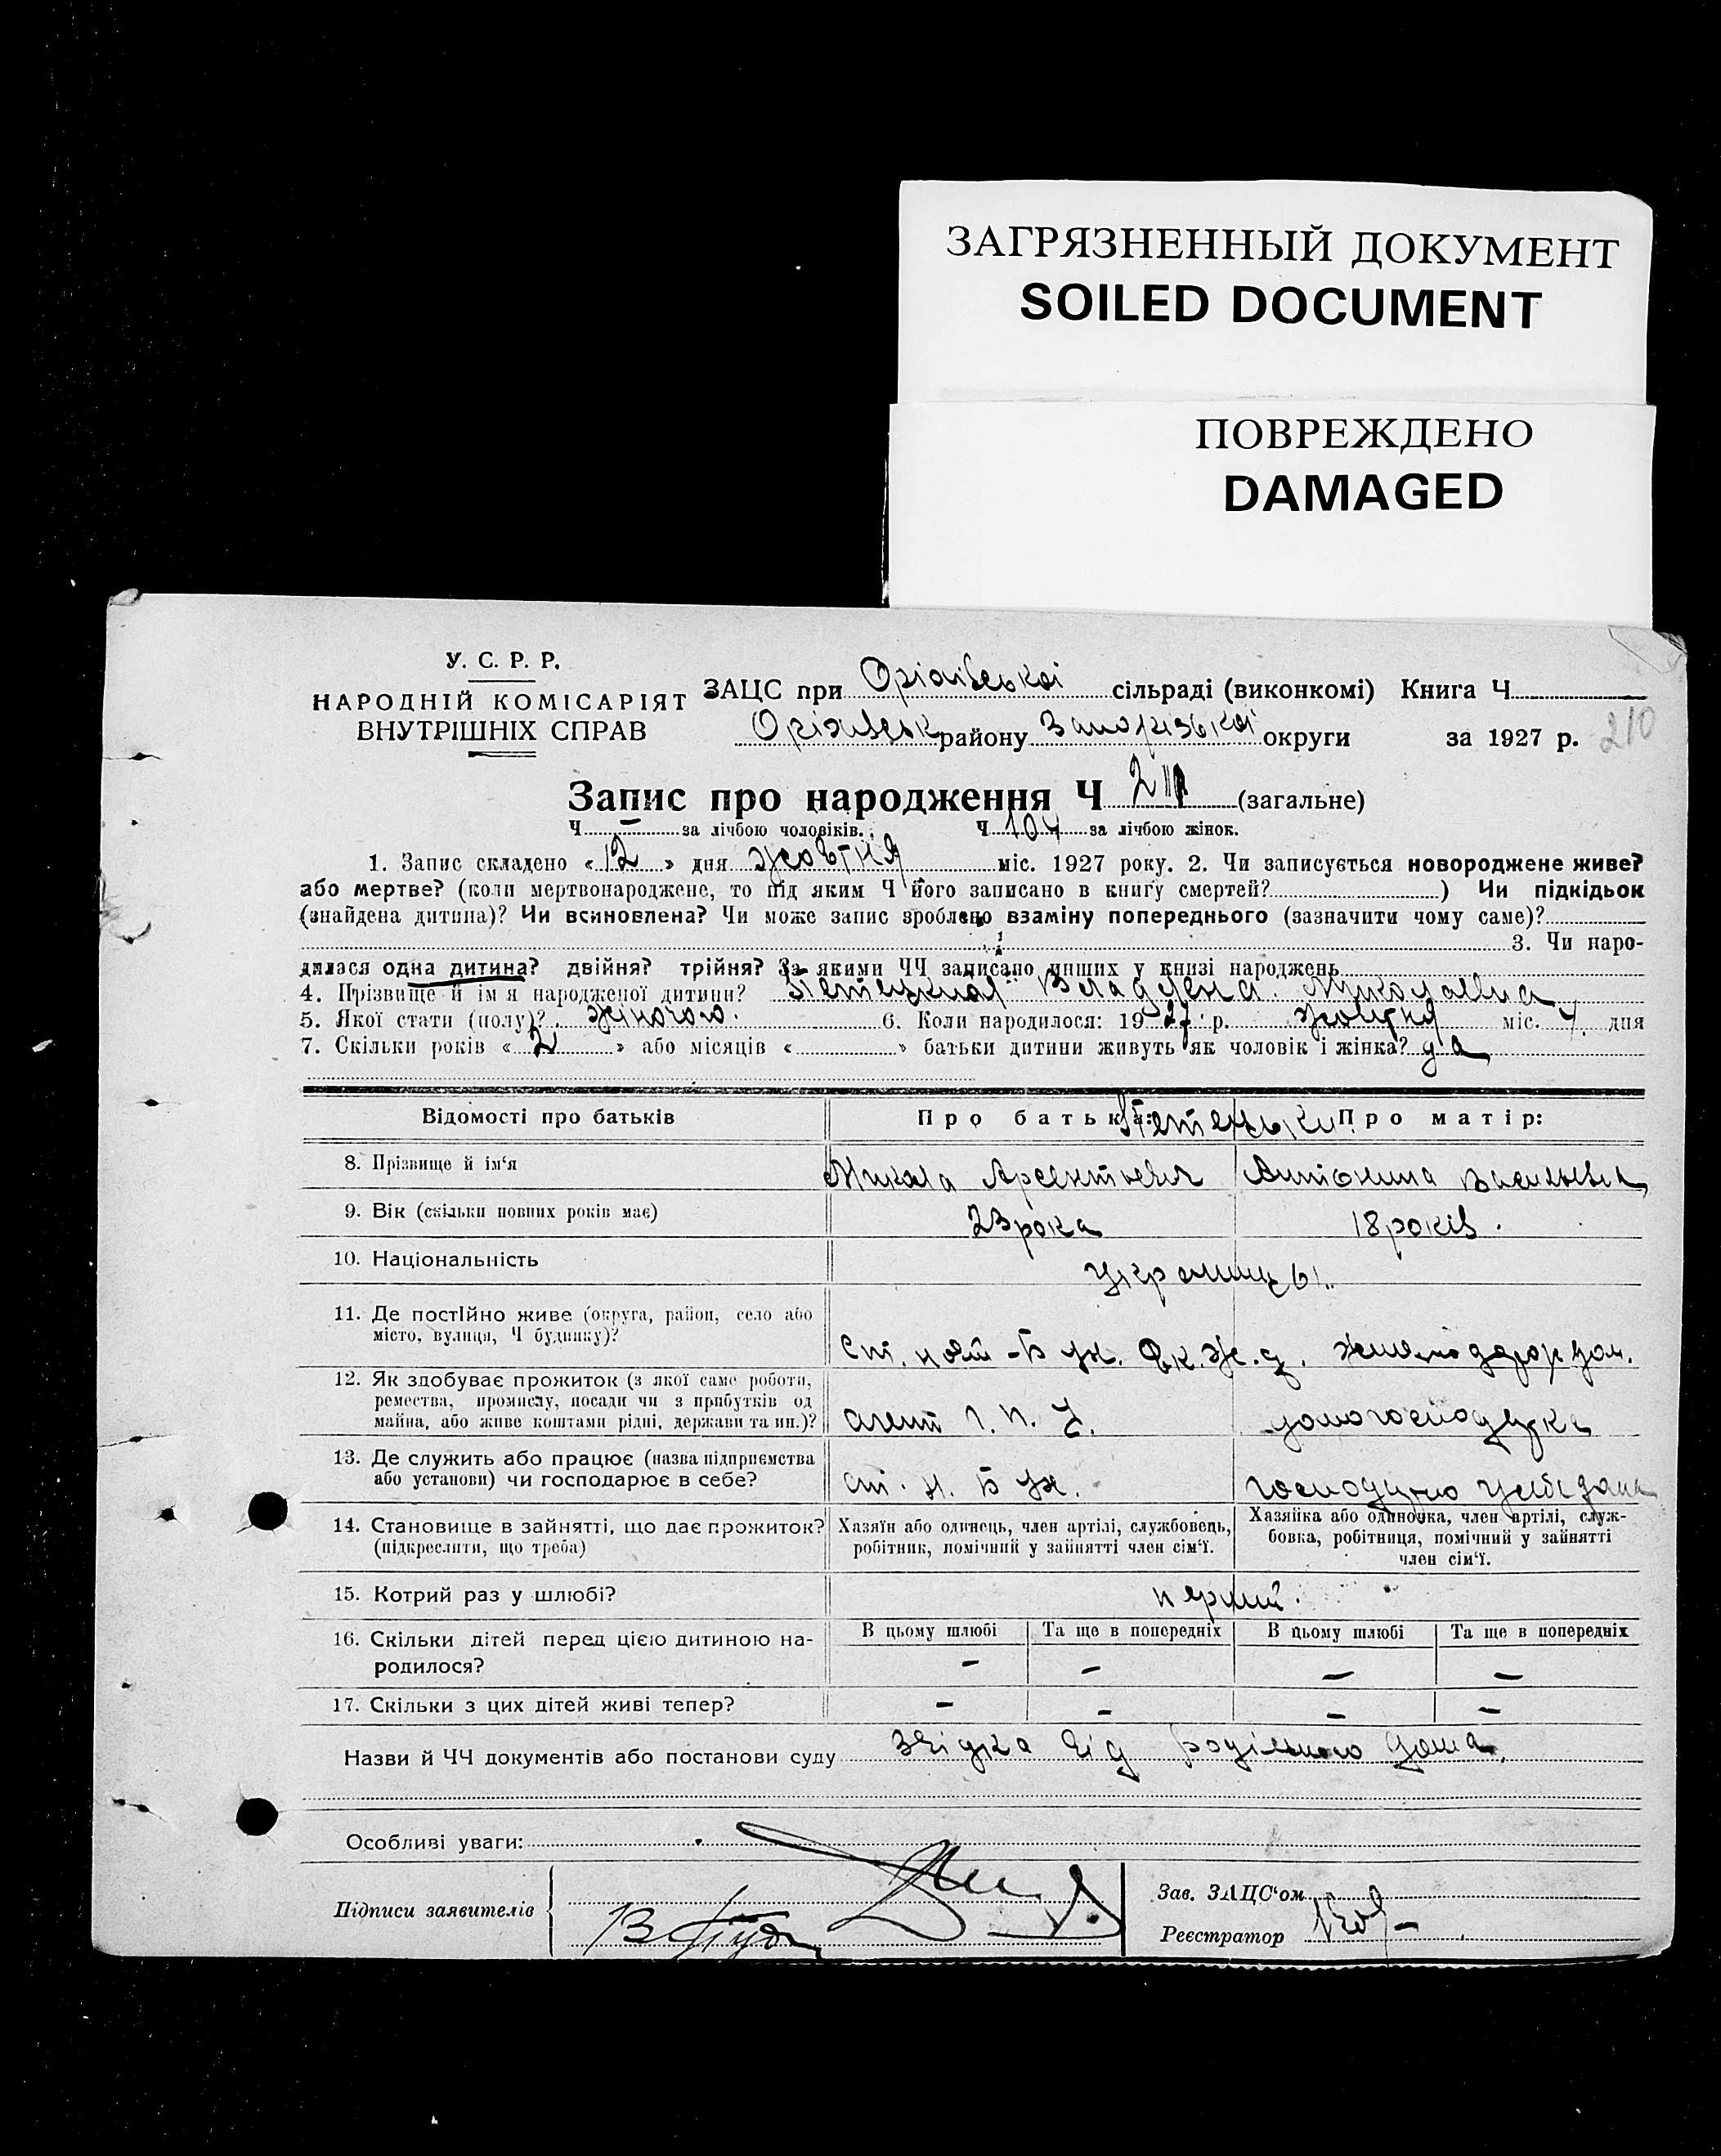 ЗАГРЯЗНЕННЫЙ ДОКУМЕНТ
SOILED DOCUMENT
ПОВРЕЖДЕНО
DAMAGED
У. С. Р. Р.
НАРОДНІЙ КОМІСАРІЯТ
ВНУТРІШНІХ СПРАВ
ЗАЦС при Оріхівської сільраді (виконкомі) Книга Ч
Оріхівськ району Запорізької округи за 1927 р. 210
Запис про народження Ч (загальне)
Ч – за лічбою чоловіків. Ч 104 за лічбою жінок.
1. Запис складено « 12 » дня жовтня міс. 1927 року. 2. Чи записується новороджене живе?
або мертве? (коли мертвонароджене, то під яким Ч його записано в книгу смертей? ) Чи підкідьок
(знайдена дитина)? Чи всиновлена? Чи може запис зроблено взаміну попереднього (зазначити чому саме)?
3. Чи наро-
дилася одна дитина? двійня? трійня? За якими ЧЧ записано инших у книзі народжень
4. Прізвище й ім'я народженої дитини? Владлена Миколаевна
5. Якої стати (полу)? жіночого. 6. Коли народилося: 19 27 р. жовтня міс. 4. дня
7. Скільки років « 2 » або місяців « » батьки дитини живуть як чоловік і жінка? да
Відомості про батьків
Про батька: Про матір:
8. Прізвище й ім'я Микола Арсентьевич Антонина Васильевна
9. Вік (скільки повних років має) 23 рока 18 років.
10. Національність украинцы.
11. Де постійно живе (округа, район, село або
місто, вулиця, Ч будинку)?
12. Як здобуває прожиток (з якої саме роботи,
ремества, промислу, посади чи з прибутків од
майна, або живе коштами рідні, держави та ин.)? агент домогосподарка
13. Де служить або працює (назва підприємства
або установи) чи господарює в себе?
14. Становище в зайнятті, що дає прожиток?
(підкреслити, що треба)
Хазяїн або одинець, член артілі, службовець,
робітник, помічний у зайнятті член сім'ї.
Хазяйка або одиночка, член артілі, служ-
бовка, робітниця, помічний у зайнятті
член сім'ї.
15. Котрий раз у шлюбі? перший.
16. Скільки дітей перед цією дитиною на-
родилося?
В цьому шлюбі Та ще в попередніх В цьому шлюбі Та ще в попередніх
– – – –
17. Скільки з цих дітей живі тепер? – – – –
Назви й ЧЧ документів або постанови суду звідка від родільного дома.
Особливі уваги:
Підписи заявителів
Зав. ЗАЦС'ом
Реєстратор